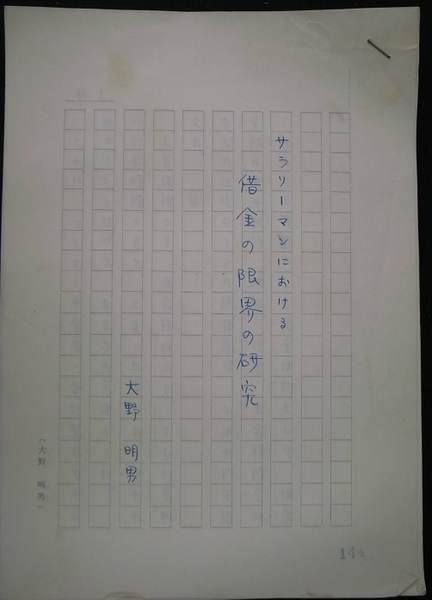 サラリーマンにおける
借金の限界の研究
大野 明男
(大野 明男)